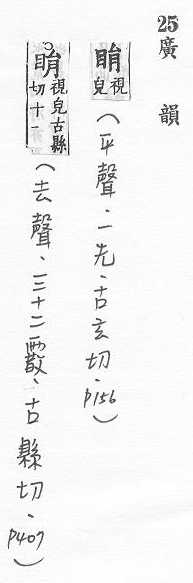 25廣韻
睊視皃（平聲、一先、古玄切、P156）
睊視皃古縣切十一（去聲、三十二霰、古縣切、P407）